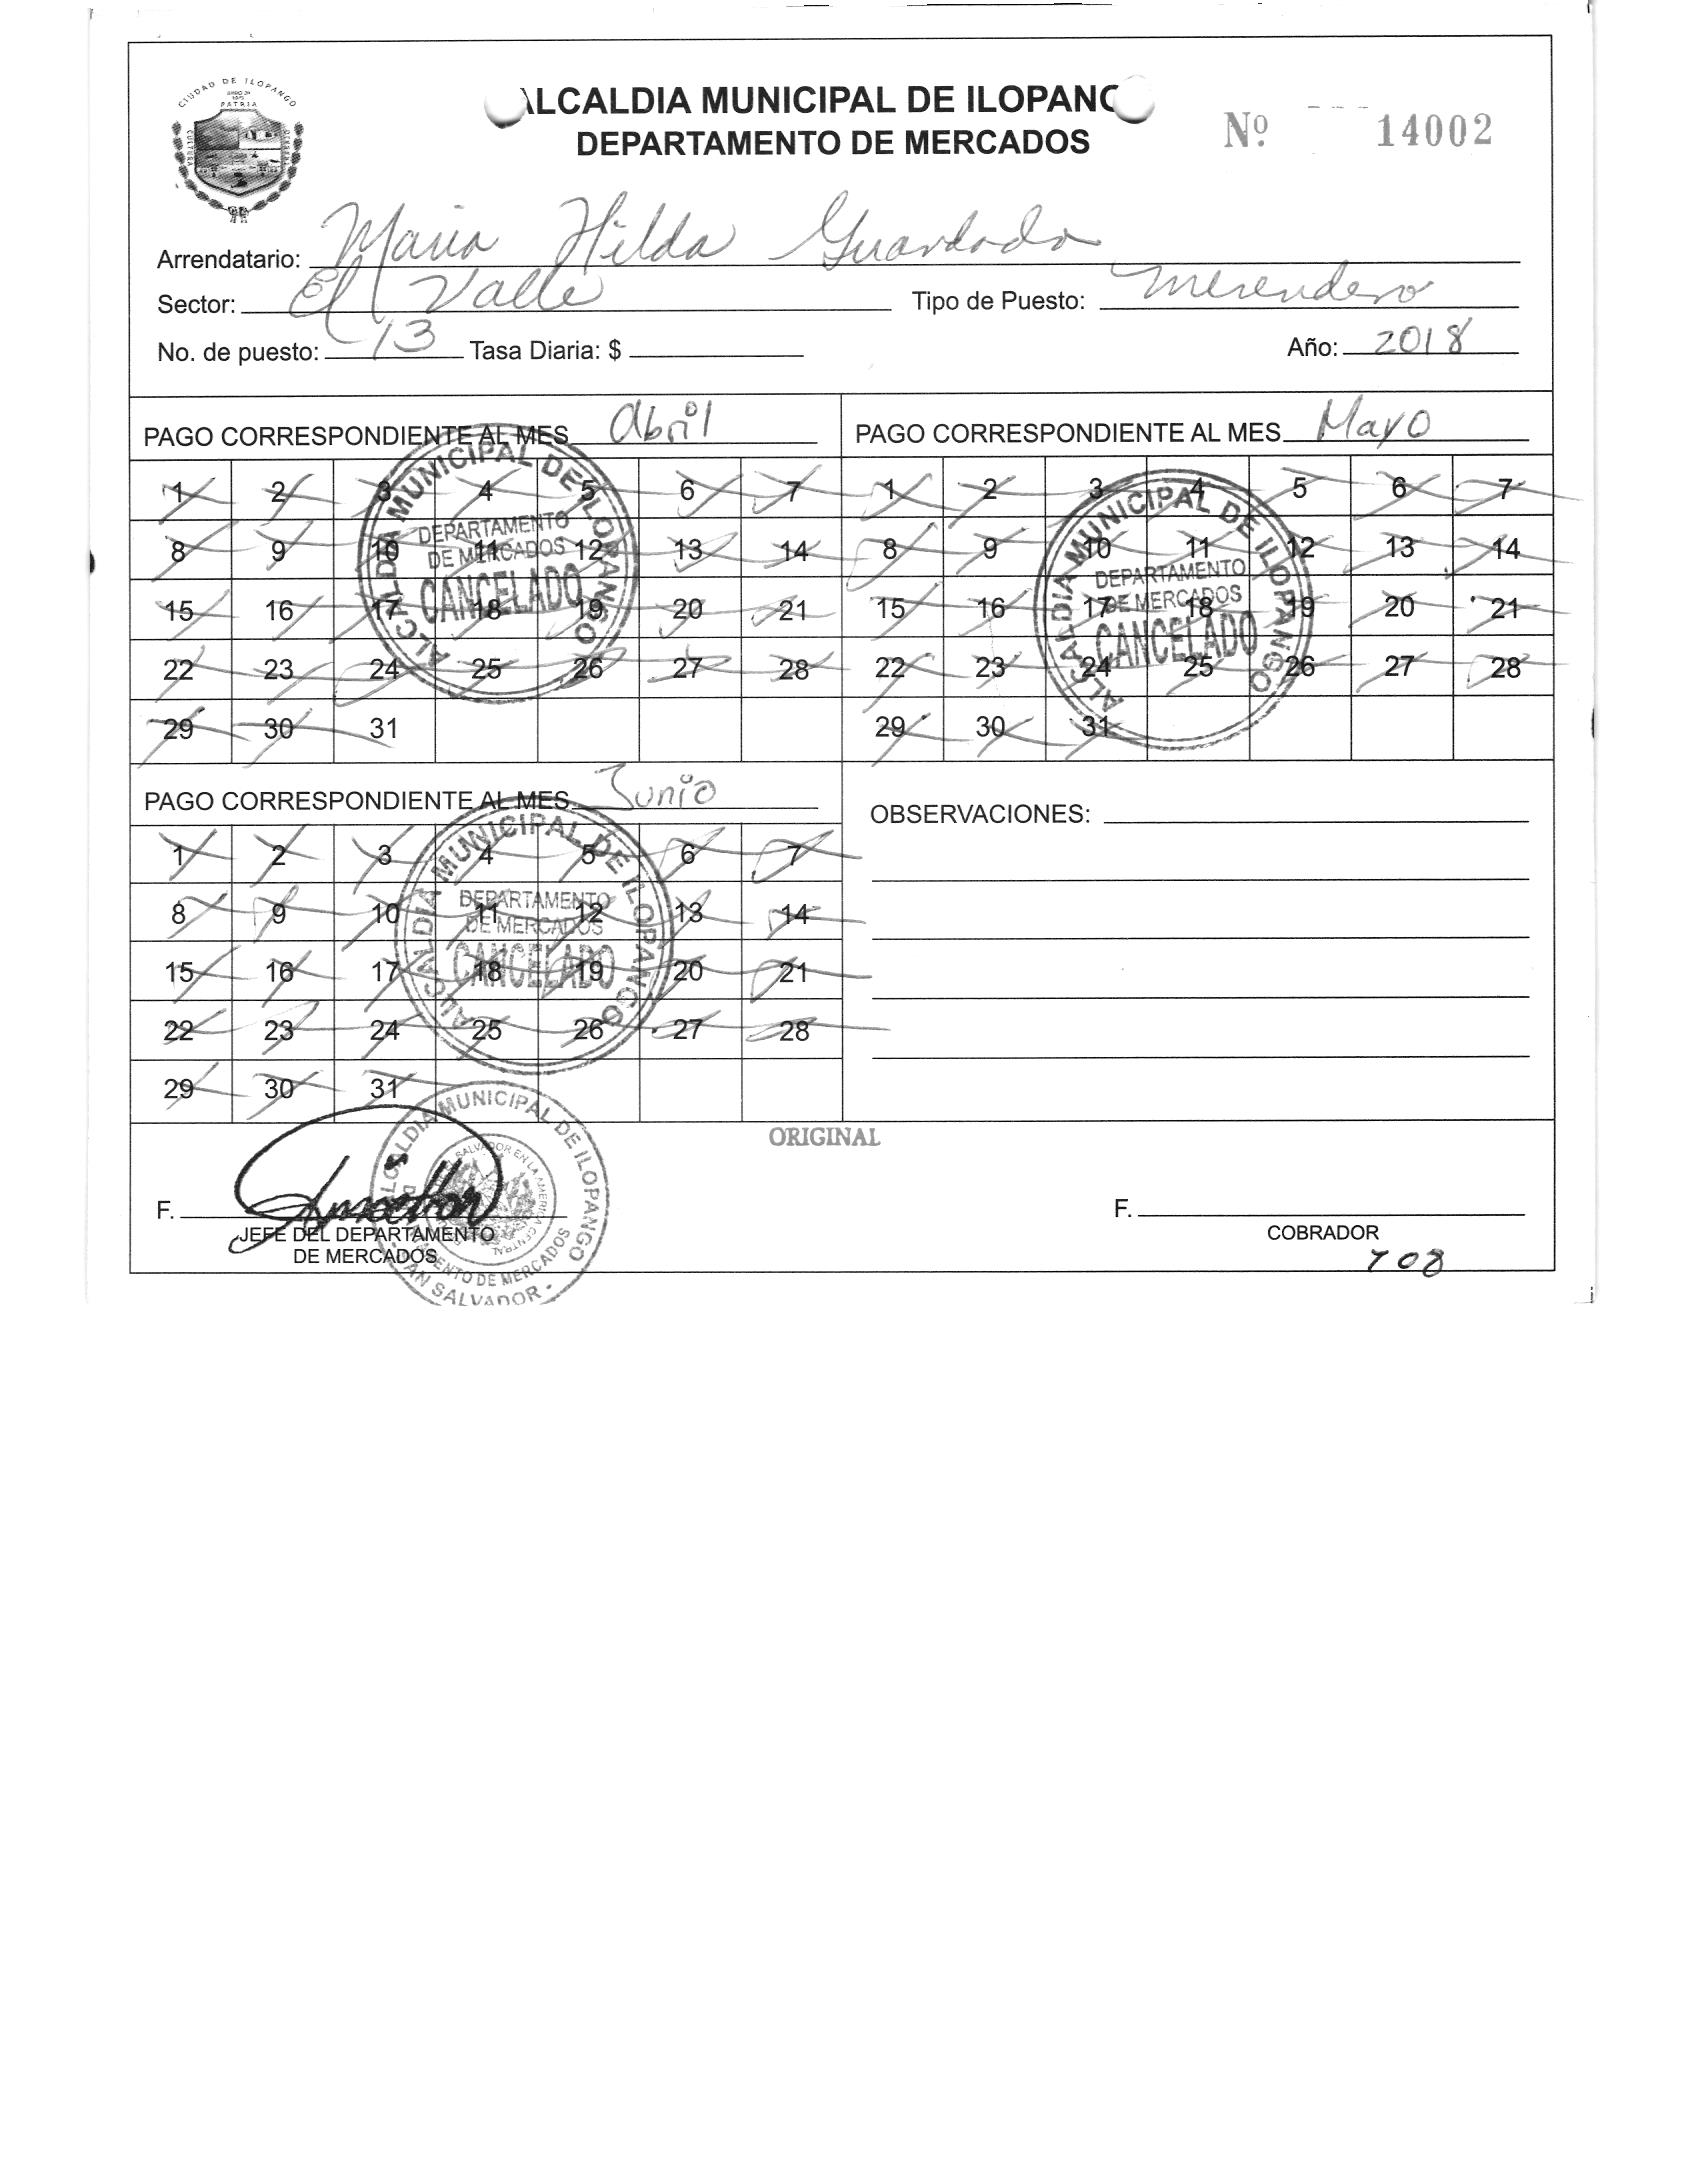 CIUDAD DE ILOPANGO
PATRIA
CULTURA
ALCALDIA MUNICIPAL DE ILOPANGO
DEPARTAMENTO DE MERCADOS
Nº 14002
Arrendatario: Maria Hilda Guardado
Sector: El Valle Tipo de Puesto: Merendero
No. de puesto: 13 Tasa Diaria: $ Año: 2018
PAGO CORRESPONDIENTE AL MES Abril
1 2 3 4 5 6 7
8 9 10 11 12 13 14
15 16 17 18 19 20 21
22 23 24 25 26 27 28
29 30 31
ALCALDIA MUNICIPAL DE ILOPANGO
DEPARTAMENTO
DE MERCADOS
CANCELADO
PAGO CORRESPONDIENTE AL MES Mayo
1 2 3 4 5 6 7
8 9 10 11 12 13 14
15 16 17 18 19 20 21
22 23 24 25 26 27 28
29 30 31
ALCALDIA MUNICIPAL DE ILOPANGO
DEPARTAMENTO
DE MERCADOS
CANCELADO
PAGO CORRESPONDIENTE AL MES Junio
1 2 3 4 5 6 7
8 9 10 11 12 13 14
15 16 17 18 19 20 21
22 23 24 25 26 27 28
29 30 31
ALCALDIA MUNICIPAL DE ILOPANGO
DEPARTAMENTO
DE MERCADOS
CANCELADO
OBSERVACIONES:
ORIGINAL
F.
JEFE DEL DEPARTAMENTO
DE MERCADOS
ALCALDIA MUNICIPAL DE ILOPANGO
SALVADOR EN LA AMERICA CENTRAL
DE MERCADOS
SAN SALVADOR
F.
COBRADOR
708